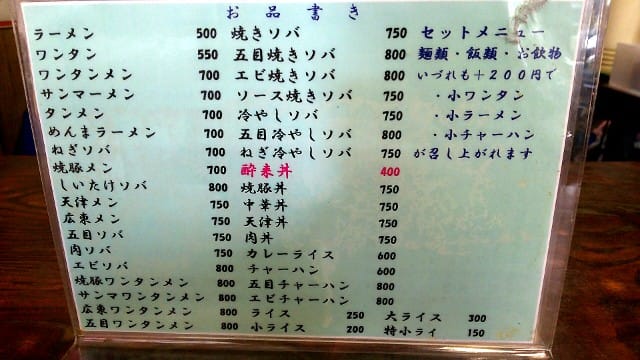 お品書き
ラーメン 500
ワンタン 550
ワンタンメン 700
サンマーメン 700
タンメン 700
めんまラーメン 700
ねぎソバ 700
焼豚メン 700
しいたけソバ 800
天津メン 750
広東メン 750
五目ソバ 750
肉ソバ 750
エビソバ 800
焼豚ワンタンメン 800
サンマワンタンメン 800
広東ワンタンメン 800
五目ワンタンメン 800
焼きソバ 750
五目焼きソバ 800
エビ焼きソバ 800
ソース焼きソバ 750
冷やしソバ 750
五目冷やしソバ 800
ねぎ冷やしソバ 750
酔来丼 400
焼豚丼 750
中華丼 750
天津丼 750
肉丼 750
カレーライス 600
チャーハン 600
五目チャーハン 800
エビチャーハン 800
ライス 250 大ライス 300
小ライス 200 特小ライ 150
セットメニュー
麺類・飯類・お飲物
いづれも＋２００円で
・小ワンタン
・小ラーメン
・小チャーハン
が召し上がれます